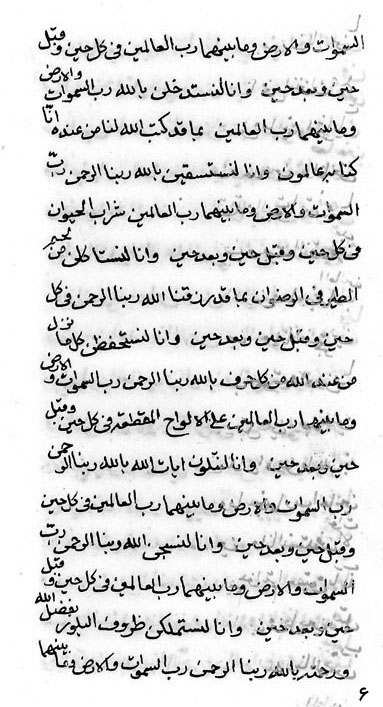 السموات والارض وما بينهما رب العالمين فى كل حين وقبل
حين وبعد حين وانا لنستدخلن بالله رب السموات والارض
وما بينهما رب العالمين بما قد كتب الله لنا من عنده انا
كنا به عالمون وانا لنستسقين بالله ربنا الرحمن رب
السموات والارض وما بينهما رب العالمين شراب الحيوان
فى كل حين وقبل حين وبعد حين وانا لنستاكلن من لحم
الطير فى الرضوان بما قد رزقنا الله ربنا الرحمن فى كل
حين وقبل حين وبعد حين وانا لنستحفظن كل ما نزل
من عند الله من كل حرف بالله ربنا الرحمن رب السموات والارض
وما بينهما رب العالمين على الالواح المقطعه فى كل حين وقبل
حين وبعد حين وانا لنتلون ايات الله بالله ربنا الرحمن
رب السموات والارض وما بينهما رب العالمين فى كل حين
وقبل حين وبعد حين وانا لنسجدن الله ربنا الرحمن رب
السموات والارض وما بينهما رب العالمين فى كل حين وقبل
حين وبعد حين وانا لنستملكن ظروف البلور بفضل الله
ورحمته بالله ربنا الرحمن رب السموات والارض وما بينهما
۶